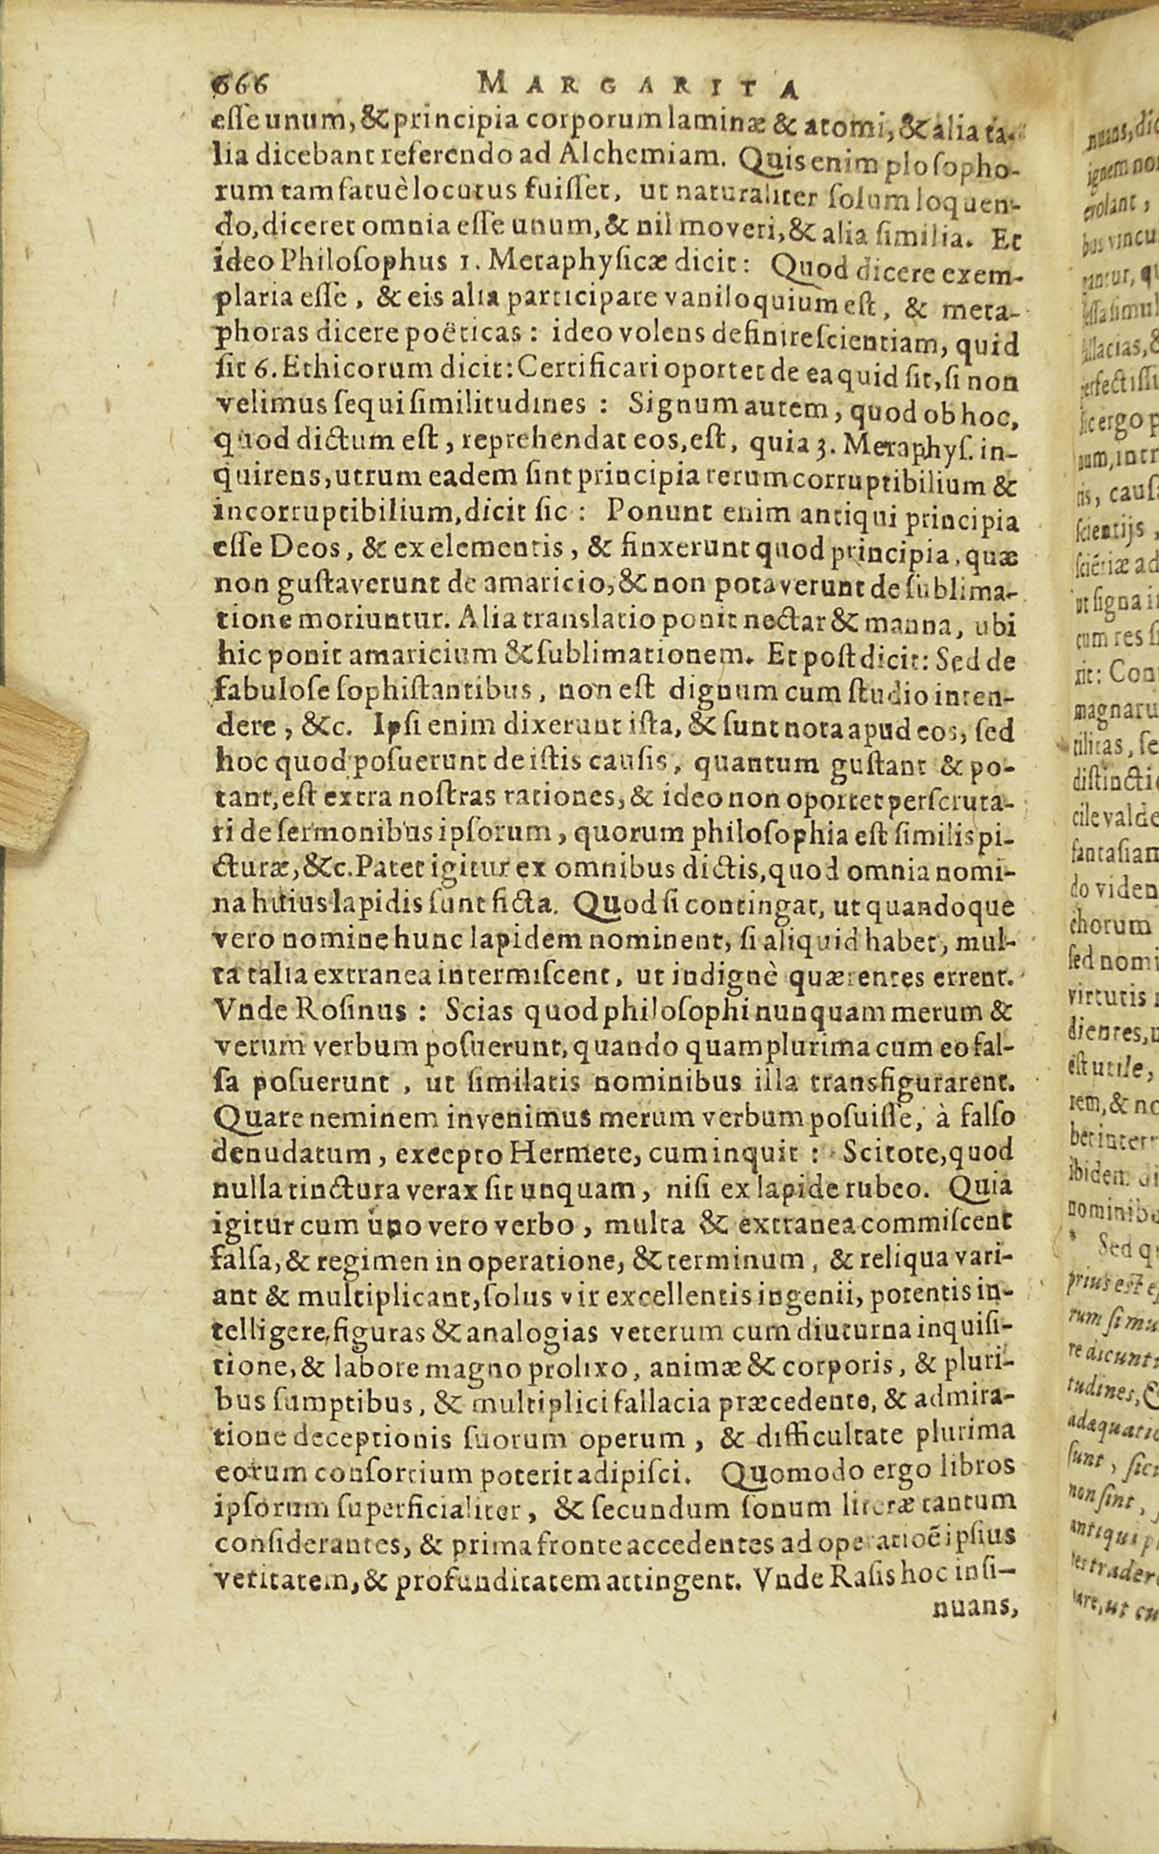 666 MARGARITA
esse unum, & principia corporum laminæ & atomi, & alia ta-
lia dicebant referendo ad Alchemiam. Quis enim plosopho-
rum tam fatuè locutus fuisset, ut naturaliter solum loquen-
do, diceret omnia esse unum, & nil moveri, & alia similia. Et
ideo Philosophus 1. Metaphysicæ dicit: Quod dicere exem-
plaria esse, & eis alia participare vaniloquium est, & meta-
phoras dicere poëticas: ideo volens definire scientiam, quid
sit 6. Ethicorum dicit: Certificari oportet de ea quid sit, si non
velimus sequi similitudines: Signum autem, quod ob hoc,
quod dictum est, reprehendat eos, est, quia 3. Metaphys. in-
quirens, utrum eadem sint principia rerum corruptibilium &
incorruptibilium, dicit sic: Ponunt enim antiqui principia
esse Deos, & ex elementis, & finxerunt quod principia, quæ
non gustaverunt de amaricio, & non potaverunt de sublima-
tione moriuntur. Alia translatio ponit nectar & manna, ubi
hic ponit amaricium & sublimationem. Et post dicit: Sed de
fabulose sophistantibus, non est dignum cum studio inten-
dere, &c. Ipsi enim dixerunt ista, & sunt nota apud eos, sed
hoc quod posuerunt de istis causis, quantum gustant & po-
tant, est extra nostras rationes, & ideo non oportet perscruta-
ri de sermonibus ipsorum, quorum philosophia est similis pi-
cturæ, &c. Patet igitur ex omnibus dictis, quod omnia nomi-
na huius lapidis sunt ficta. Quod si contingat, ut quandoque
vero nomine hunc lapidem nominent, si aliquid habet, mul-
ta talia extranea intermiscent, ut indignè quærentes errent.
Vnde Rosinus: Scias quod philosophi nunquam merum &
verum verbum posuerunt, quando quamplurima cum eo fal-
sa posuerunt, ut similatis nominibus illa transfigurarent.
Quare neminem invenimus merum verbum posuisse, à falso
denudatum, excepto Hermete, cum inquit: Scitote, quod
nulla tinctura verax sit unquam, nisi ex lapide rubeo. Quia
igitur cum uno vero verbo, multa & extranea commiscent
falsa, & regimen in operatione, & terminum, & reliqua vari-
ant & multiplicant, solus vir excellentis ingenii, potentis in-
telligere, figuras & analogias veterum cum diuturna inquisi-
tione, & labore magno prolixo, animæ & corporis, & pluri-
bus sumptibus, & multiplici fallacia præcedente, & admira-
tione deceptionis suorum operum, & difficultate plurima
eorum consortium poterit adipisci. Quomodo ergo libros
ipsorum superficialiter, & secundum sonum literæ tantum
considerantes, & prima fronte accedentes ad operatioẽ ipsius
veritatem, & profunditatem attingent. Vnde Rasis hoc insi-
nuans,